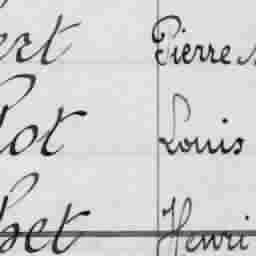 ert Pierre
lot Louis
bet Henri